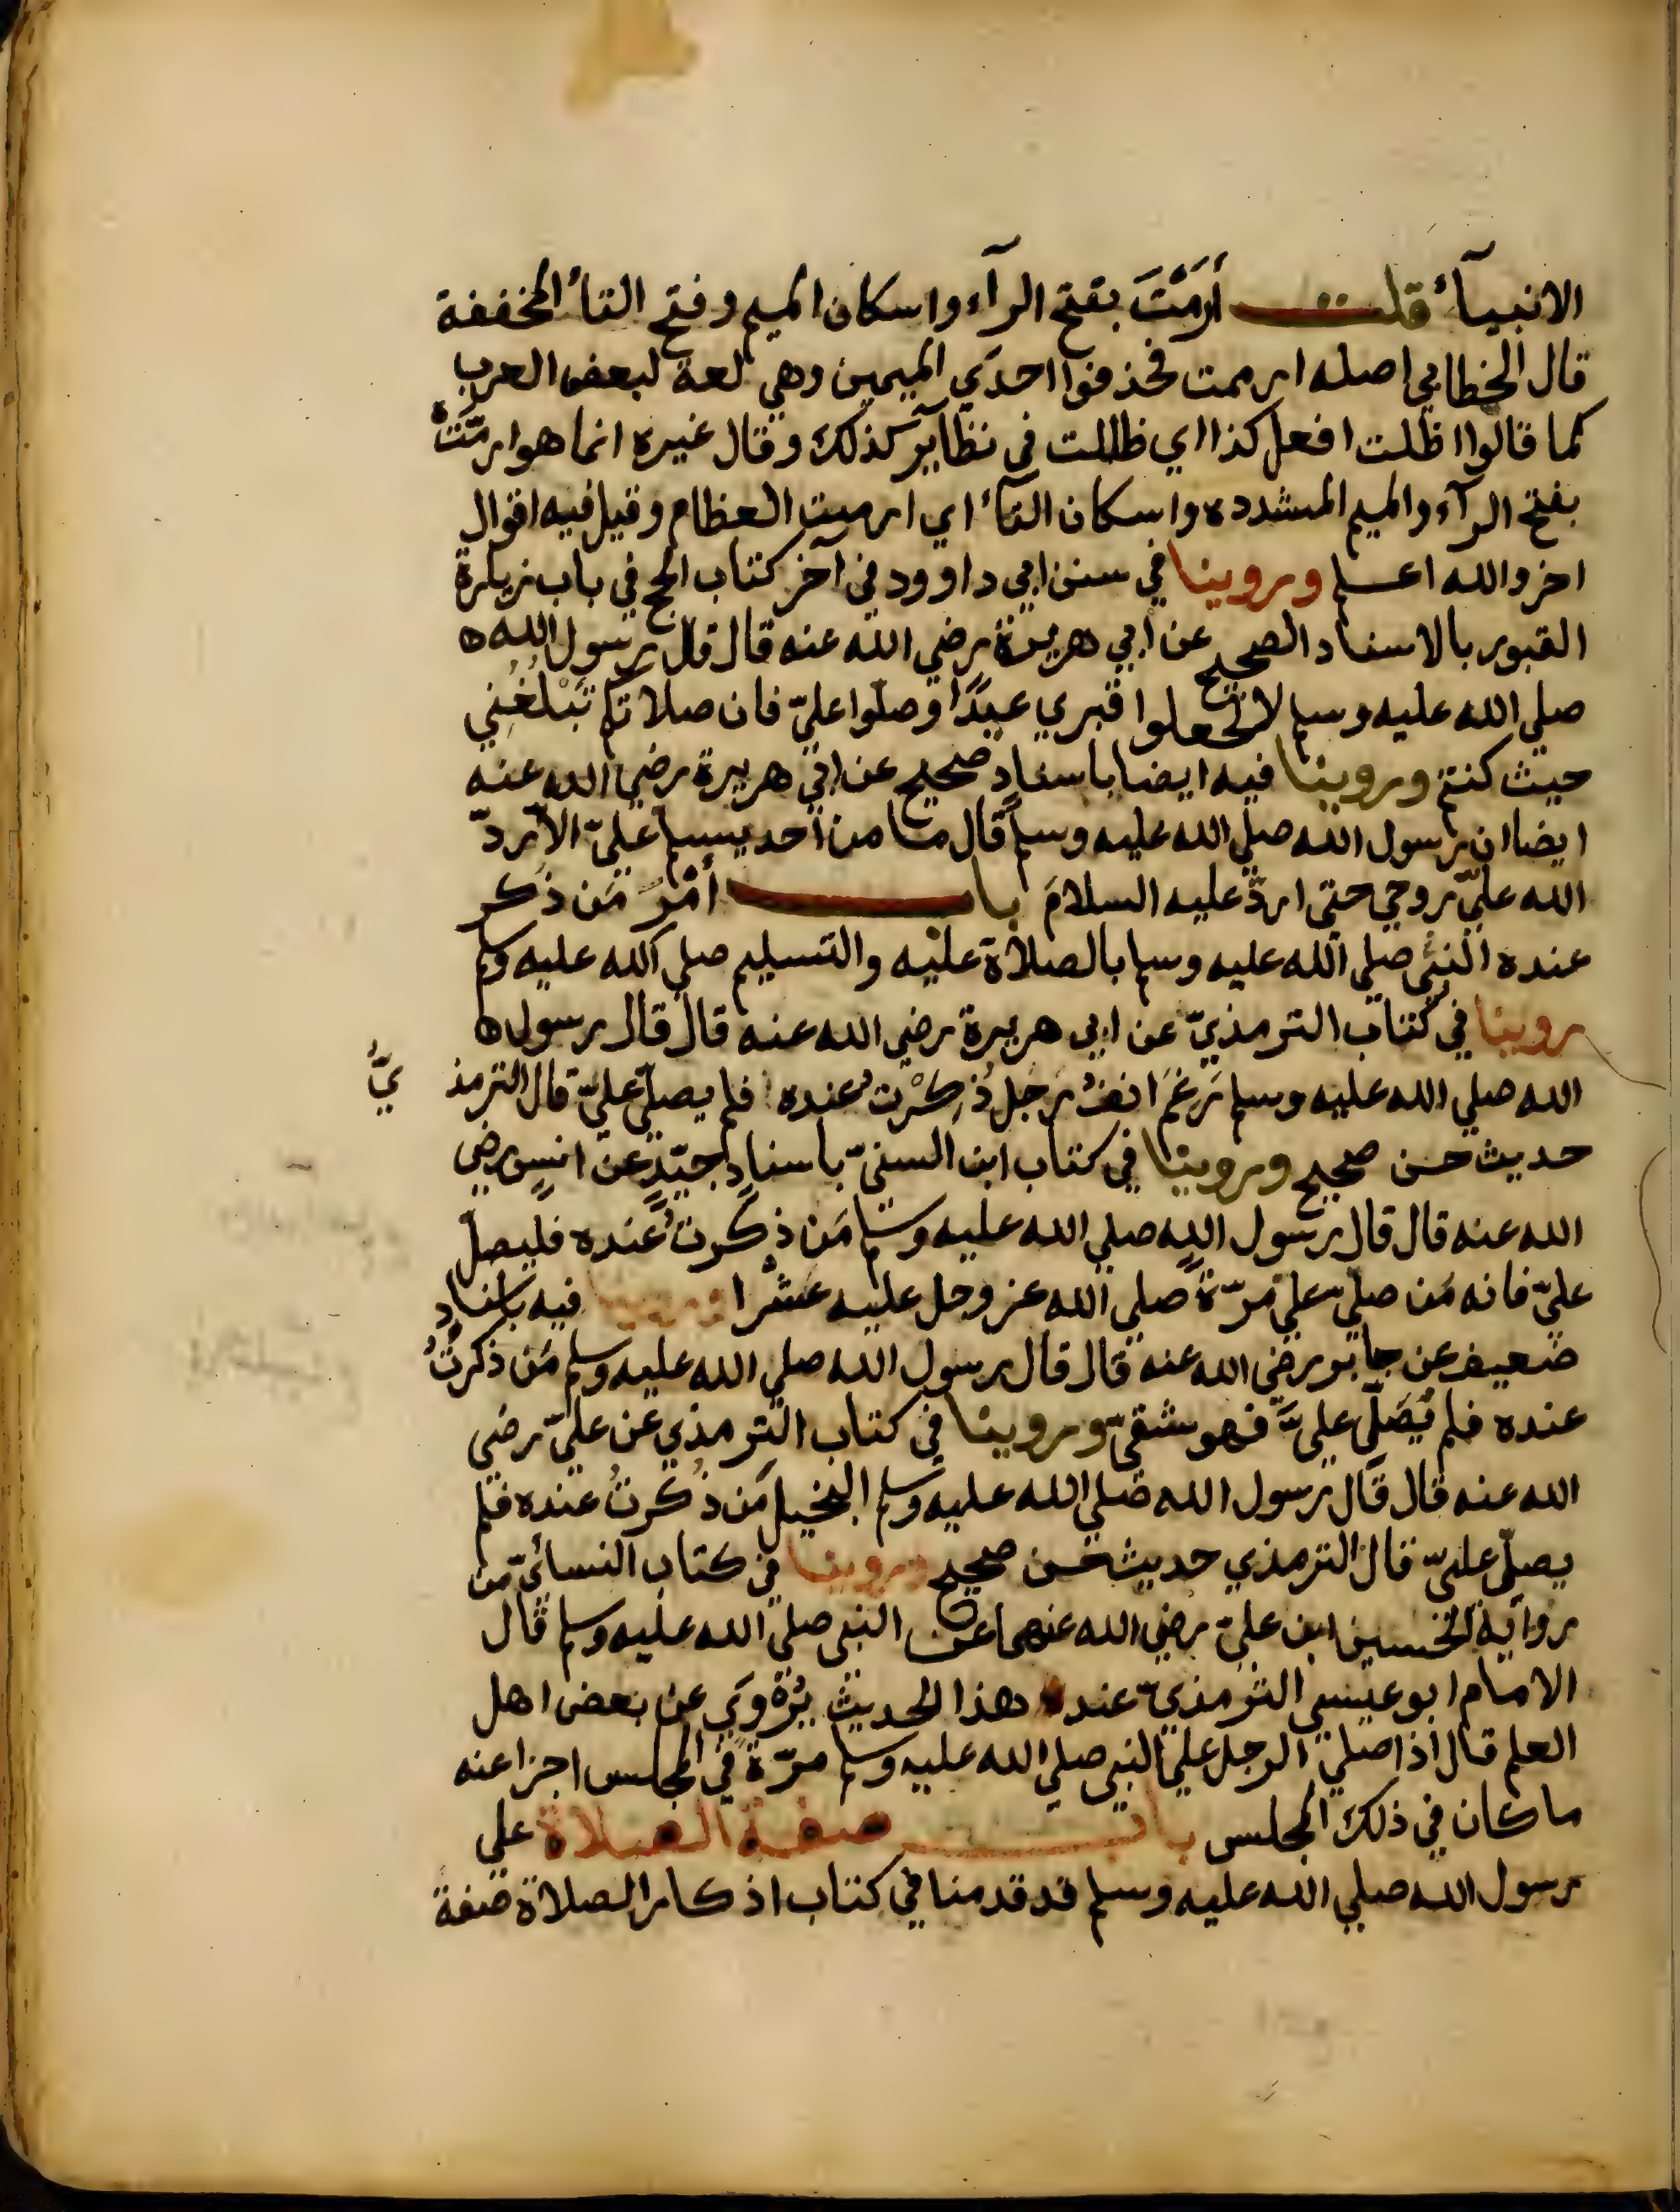 الانبيآء قلت أرَمْتَ بفتح الرآء واسكان الميم وفتح التآء المخففة
قال الخطابي اصله ارممت فحذفوا احدي الميمين وهي لغة لبعض العرب
كما قالوا اظلت افعل كذا اي ظللت في نظاير كذلك وقال غيره انما هو ارمَّتْ
بفتح الرآء والميم المشدده واسكان التآء اي ارمت العظام وقيل فيه اقوال
اخر والله اعلم وروينا في سنن ابي داوود في آخر كتاب الحج في باب زيارة
القبور بالاسناد الصحيح عن ابي هريرة رضي الله عنه قال قال رسول الله
صلي الله عليه وسلم لا تجعلوا قبري عيدًا وصلّوا عليّ فان صلاتكم تبْلُغُني
حيث كنتم وروينا فيه ايضا باسنادٍ صحيح عن ابي هريرة رضي الله عنه
ايضا ان رسول الله صلي الله عليه وسلم قال ما من أحد يسلم عليّ الا ردّ
الله عليّ روحي حتي اردّ عليه السلامَ باب أمْر مَن ذُكر
عنده النبي صلي الله عليه وسلم بالصلاة عليه والتسليم صلي الله عليه وسلم
روينا في كتاب الترمذيّ عن ابي هريرة رضي الله عنه قال قال رسول
الله صلي الله عليه وسلم رَغمَ انفُ رَجل ذُكِرْتُ عنده فلم يصلّ عليّ قال الترمذ يّ
حديث حسن صحيح وروينا في كتاب ابن السنيّ باسنادٍ جيّدٍ عن انسٍ رضي
الله عنه قال قال رسول الله صلي الله عليه وسلم مَن ذُكرتُ عنده فليصلّ
عليّ فانه مَن صلّي عليّ مرّةً صلي الله عز وجل عليه عشْرا وروينا فيه باسنادٍ
ضعيف عن جابر رضي الله عنه قال قال رسول الله صلي الله عليه وسلم مَن ذكرتُ
عنده فلم يُصَلّي عليَّ فهو شقيّ وروينا في كتاب الترمذي عن عليّ رضي
الله عنه قال قال رسول الله صلي الله عليه وسلم البخيل مَن ذُكرتُ عنده فلم
يصلّ عليّ قال الترمذي حديث حسن صحيح وروينا في كتاب النسائيّ من
رواية الحسين ابن عليّ رضي الله عنهما عن النبي صلي الله عليه وسلم قال
الامام ابو عيسي الترمذيّ عند هذا الحديث يُرْوَي عن بعض اهل
العلم قال اذا صلي الرجل علي النبي صلي الله عليه وسلم مرّةً في المجلس اجزا عنه
ما كان في ذلك المجلس باب صفة الصلاة علي
رسول الله صلي الله عليه وسلم قد قدمنا في كتاب اذكار الصلاة صفة